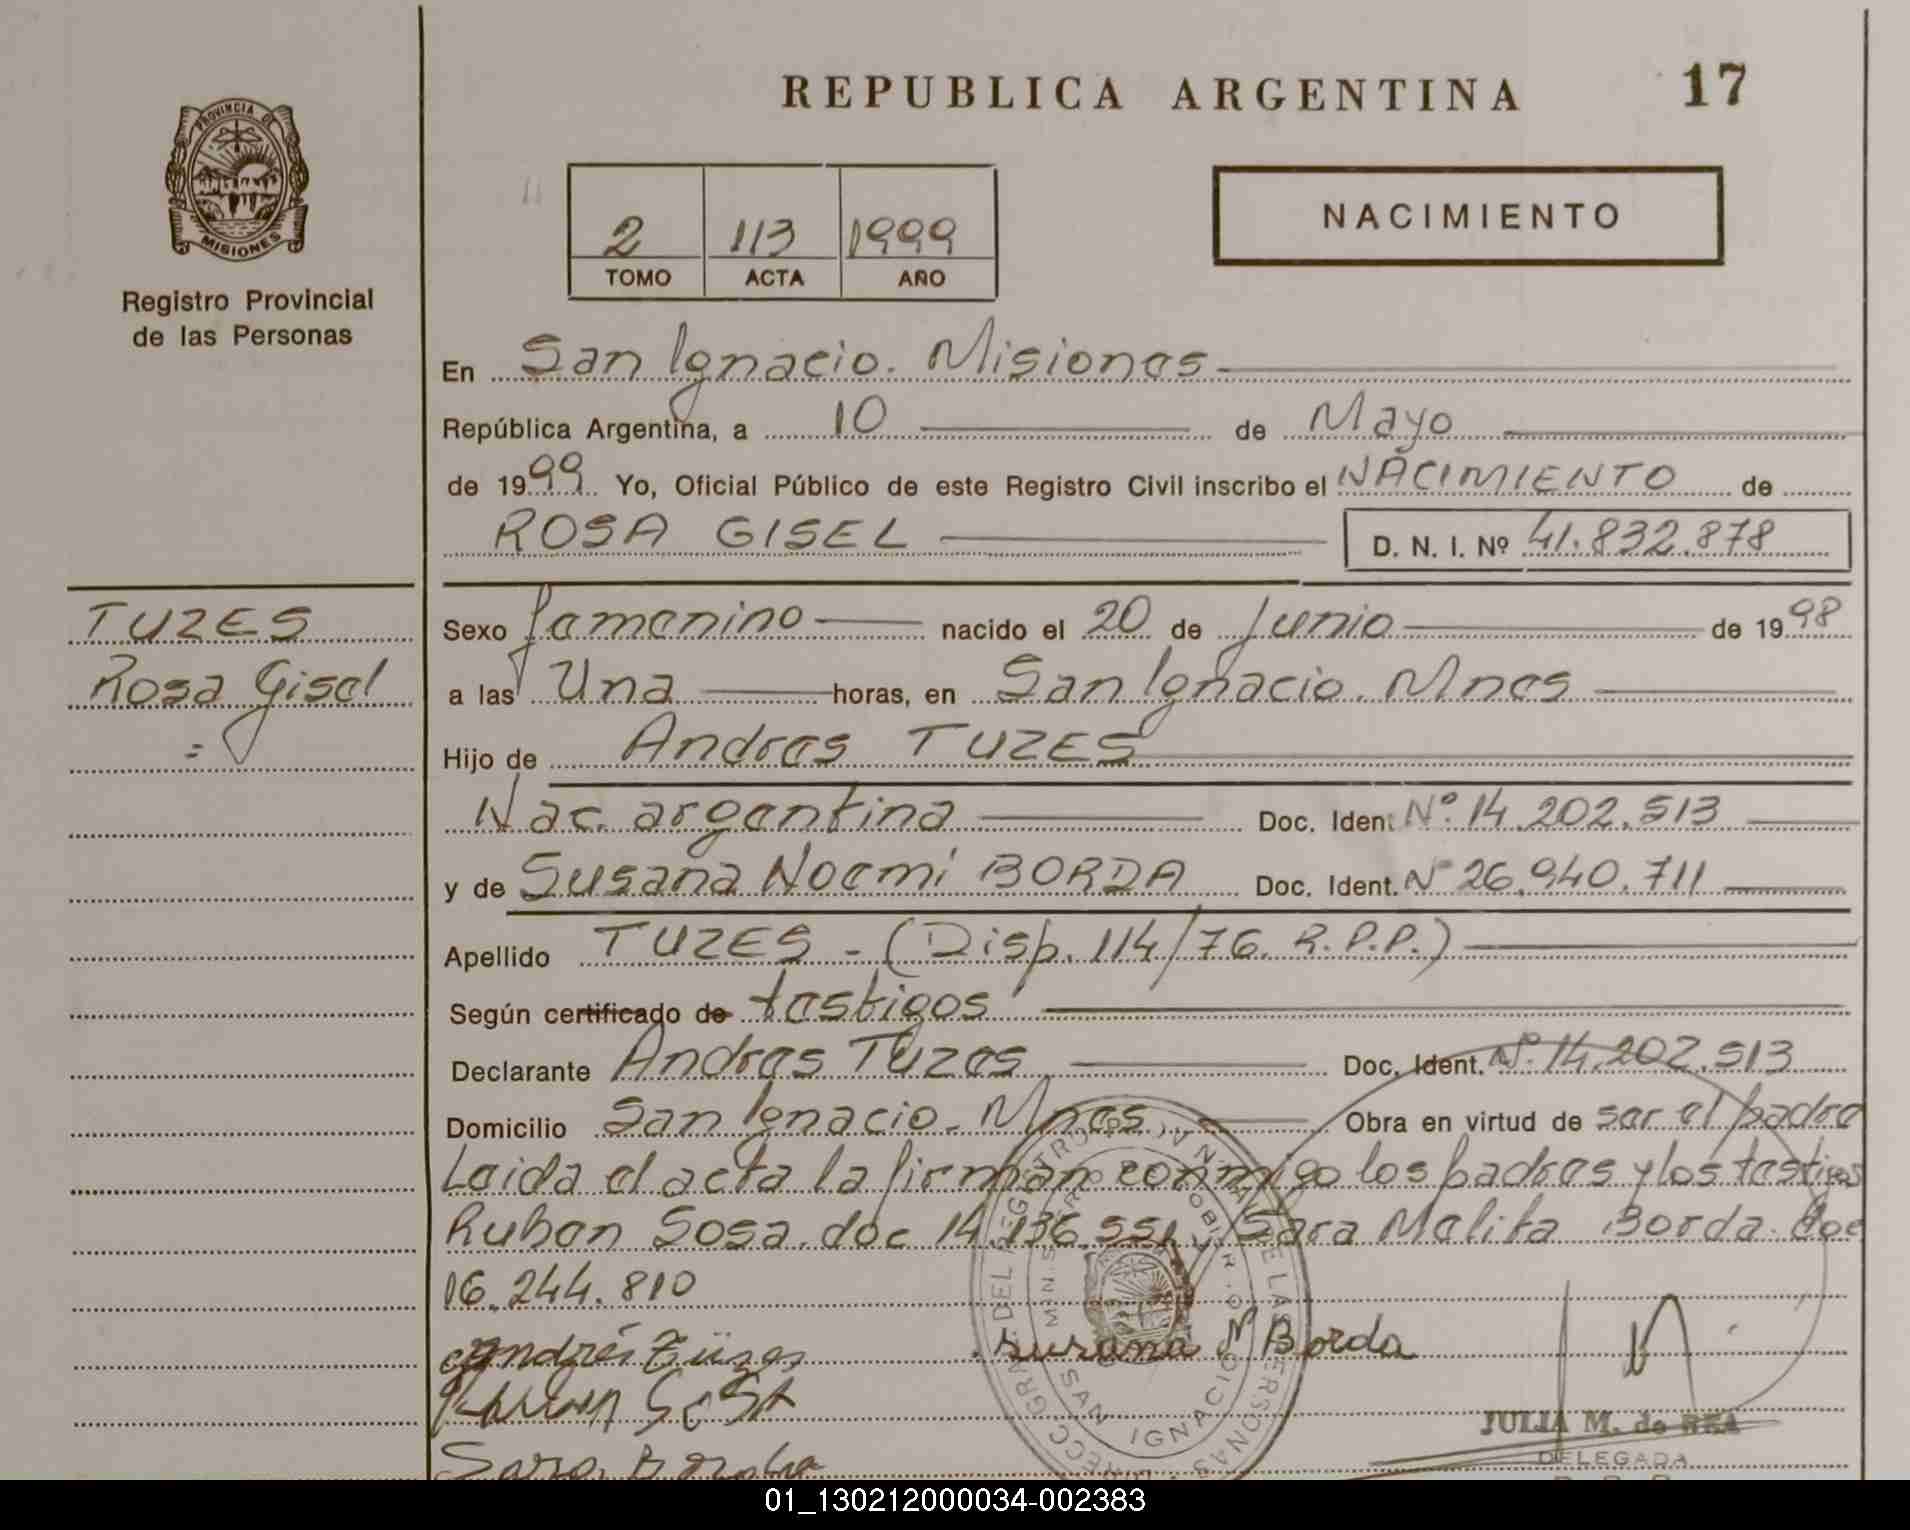 REPUBLICA ARGENTINA 17
PROVINCIA DE
MISIONES
Registro Provincial
de las Personas
2 113 1999
TOMO ACTA AÑO
NACIMIENTO
En San Ignacio. Misiones
República Argentina, a 10 de Mayo
de 1999 Yo, Oficial Público de este Registro Civil inscribo el NACIMIENTO de
ROSA GISEL D. N. I. Nº 41.832.878
TUZES
Rosa Gisel
Sexo femenino nacido el 20 de Junio de 1998
a las Una horas, en San Ignacio. Mnes
Hijo de Andres TUZES
Nac. argentina Doc. Iden. Nº 14.202.513
y de Susana Noemí BORDA Doc. Ident. Nº 26.940.711
Apellido TUZES - (Disp. 114/76. R.P.P.)
Según certificado de testigos
Declarante Andres Tuzes Doc. Ident. Nº 14.202.513
Domicilio San Ignacio. Mnes Obra en virtud de ser el padre
Leida el acta la firman conmigo los padres y los testigos
Ruben Sosa. doc 14.136.551, Sara Melita Borda. doc
16.244.810
Andrés Tüzes Susana N Borda
Ruben Sosa
Sara Borda
SAN IGNACIO
JULIA M. de REA
DELEGADA
01_130212000034-002383